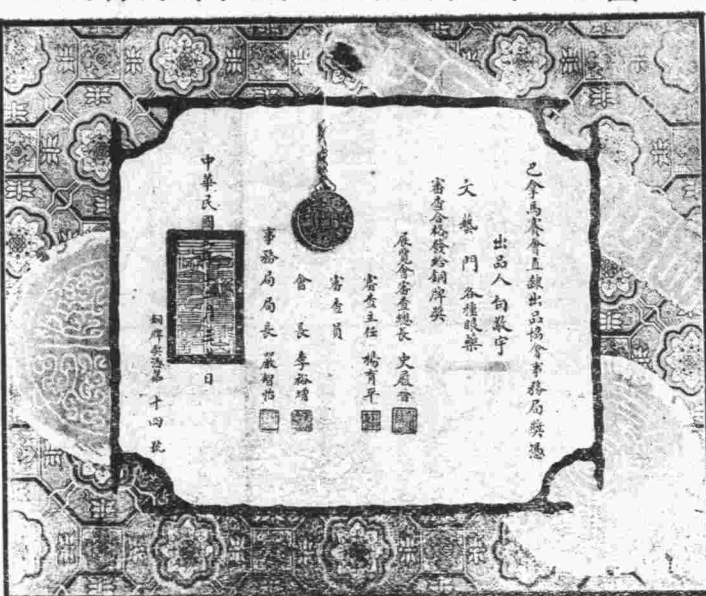 巴拿馬賽會直隸出品協會事務局獎憑
出品人 白敬宇
文藝門 各種眼藥
審查合格發給銅牌獎
展覽會審查總長 史履晉
審查主任 楊育平
審查員
會長 李裕增
事務局局長 嚴智怡
中華民國 年 月 日
銅牌獎憑第十四號